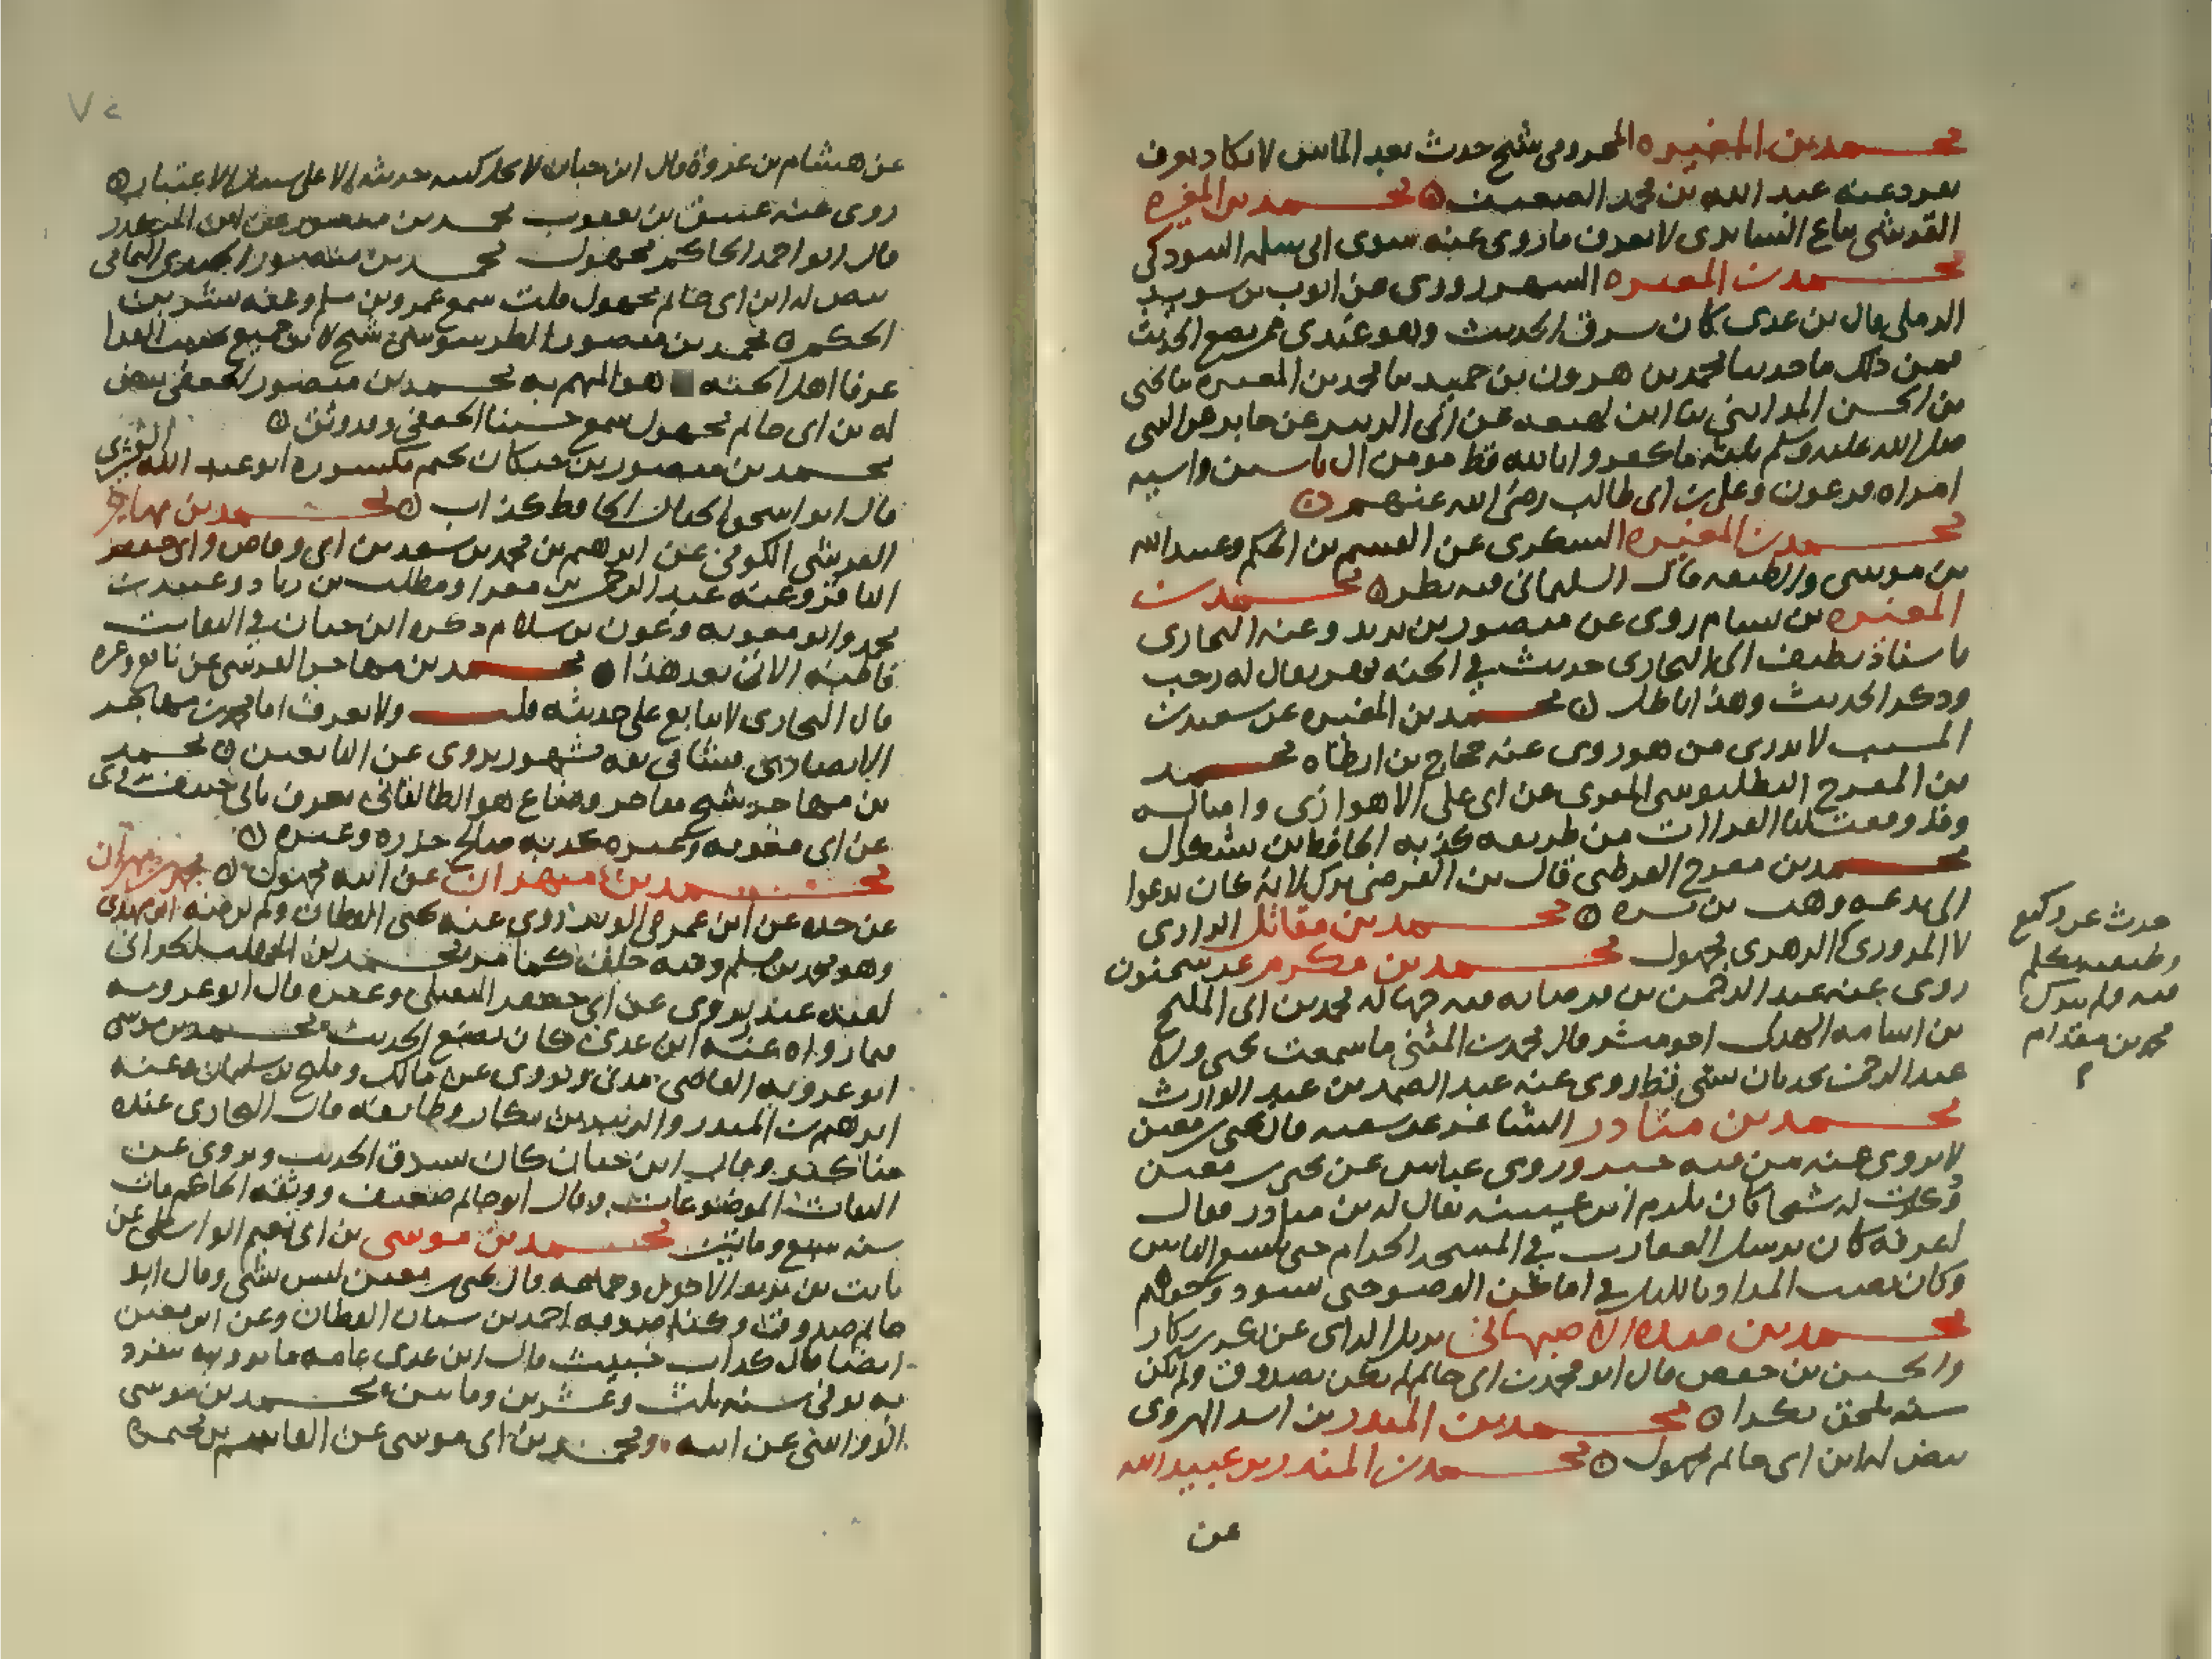 محمد بن المغيرة المخزومي شيخ حدث بعد المائتين لا يكاد يعرف
تفرد عنه عبد الله بن محمد الضعيف ۞ محمد بن المغيرة
القرشي بياع السابري لا يعرف ما روى عنه سوى ابي سلمة التبوذكي
محمد بن المغيرة الشهرزوري عن ايوب بن سويد
الرملي قال بن عدي كان يسرق الحديث وهو عندي ممن يضع الحديث
فمن ذلك ما حدثنا محمد بن هرون بن حميد ثنا محمد بن المغيرة ثنا يحيى
بن الحسن المدايني ثنا ابن لهيعة عن ابي الزبير عن جابر عن النبي
صلى الله عليه وسلم ثلثة ما كفروا بالله قط مومن ال ياسين واسية
امراة فرعون وعلي بن ابي طالب رضي الله عنهم ۞
محمد بن المغيرة السكري عن القسم بن الحكم وعبيد الله
بن موسى والطبقة قال السليماني فيه نظر ۞ محمد بن
المغيرة بن بسام روى عن منصور بن يزيد وعنه البخاري
باسناد نظيف الى البخاري حديث في الجنة نهر يقال له رجب
وذكر الحديث وهذا باطل ۞ محمد بن المغيرة عن سعيد بن
المسيب لا يدرى من هو روى عنه حجاج بن ارطاة ۞ محمد
بن المفرج البطليوسي المقري عن ابي علي الاهوازي وامثاله
وقد وقعت لنا القراات من طريقه كذبه الحافظ بن بشكوال
محمد بن مفرج القرطبي قال بن الفرضي ترك لانه كان يدعوا
الى بدعة وهب بن مسرة ۞ محمد بن مقاتل الرازي
لا المروزي الزهري مجهول محمد بن مكرم عن سحنون
روى عنه عبد الرحمن بن فيه جهالة محمد بن ابي المليح
بن اسامة الهذلي اخو مبشر قال محمد بن المثنى ما سمعت يحيى ولا
عبد الرحمن يحدثان بشي قط روى عنه عبد الصمد بن عبد الوارث
محمد بن مناذر الشاعر عن شعبة قال يحيى بن معين
لا يروي عنه من فيه خير وروى عباس عن يحيى بن معين
وذكرت له شيخا كان يلزم ابن عيينة يقال له بن مناذر فقال
اعرفه كان يرسل العقارب في المسجد الحرام حتى تلسع الناس
وكان يصب المداد بالليل في اماكن الوضو حتى يسود وجوههم
محمد بن منده الاصبهاني نزيل الري عن بكر بن بكار
والحسين بن حفص قال ابو محمد بن ابي حاتم لم يكن بصدوق ولم يكن
سنه يلحق بكرا ۞ محمد بن المنذر بن اسد الهروي
بيض له ابن ابي حاتم مجهول ۞ محمد بن المنذر بن عبيد الله
عن
حدث عن وكيع
وطبقته تكلم
فيه ولم يترك
محمد بن مقدام
عن هشام بن عروة قال ابن حبان لا يحل كتبه حديثه الا على سبيل الاعتبار ۞
روى عنه عتيق بن يعقوب محمد بن منصور عن ابن المنكدر
قال ابو احمد الحاكم مجهول محمد بن منصور الجندي اليماني
بيض له ابن ابي حاتم مجهول قلت سمع عمرو بن مسلم وعنه بشر بن
الحكم ۞ محمد بن منصور الطرسوسي شيخ لابن جميع بحديث القرا
عرفا اهل الجنة هو المتهم به محمد بن منصور الجعفي بيض
له بن ابي حاتم مجهول سمع حسينا الجعفي وقد وثق ۞
محمد بن منصور بن جيكان بجيم مكسورة ابو عبد الله القشيري
قال ابو اسحق الحبال الحافظ كذاب ۞ محمد بن مهاجر
القرشي الكوفي عن ابرهيم بن محمد بن سعد بن ابي وقاص وابي جعفر
الباقر وعنه عبد الرحمن بن مغرا ومطلب بن زياد وعبيد بن
محمد وابو معوية وعون بن سلام ذكره ابن حبان في الثقات
فاظنه الاتي بعد هذا ۞ محمد بن مهاجر القرشي عن نافع وغيره
قال البخاري لا يتابع على حديثه قلت ولا يعرف اما محمد بن مهاجر
الانصاري فشامي ثقة مشهور يروي عن التابعين ۞ محمد
بن مهاجر شيخ متاخر وضاع هو الطالقاني يعرف باخي حنيف يروي
عن ابي معوية وغيره كذبه صالح جزرة وغيره ۞
محمد بن مهران عن ابيه مجهول ۞ محمد بن مهران
عن جده عن ابن عمر في الوتر روى عنه يحيى القطان ولم يرضه ابن مهدي
وهو محمد بن مسلم وفيه خلف كما مر محمد بن المهلب الحراني
لقبه عندر يروي عن ابي جعفر النفيلي وغيره قال ابو عروبة
فيما رواه عنه ابن عدي كان يضع الحديث محمد بن موسى
ابو غزية القاضي مدني يروي عن مالك وفليح بن سليمان وعنه
ابرهيم بن المنذر والزبير بن بكار وطايفة قال البخاري عنده
مناكير وقال ابن حبان كان يسرق الحديث ويروي عن
الثقات الموضوعات وقال ابو حاتم ضعيف ووثقه الحاكم مات
سنة سبع ومايتين محمد بن موسى بن ابي نعيم الواسطي عن
ثابت بن يزيد الاحول وجماعة قال يحيى بن معين ليس بشي وقال ابو
حاتم صدوق وكذا صدقه احمد بن سنان القطان وعن ابن معين
ايضا قال كذاب خبيث قال ابن عدي عامة ما يرويه ينفرد
به توفي سنة ثلث وعشرين ومايتين محمد بن موسى
عن ابيه محمد بن ابي موسى عن القاسم بن مخيمرة